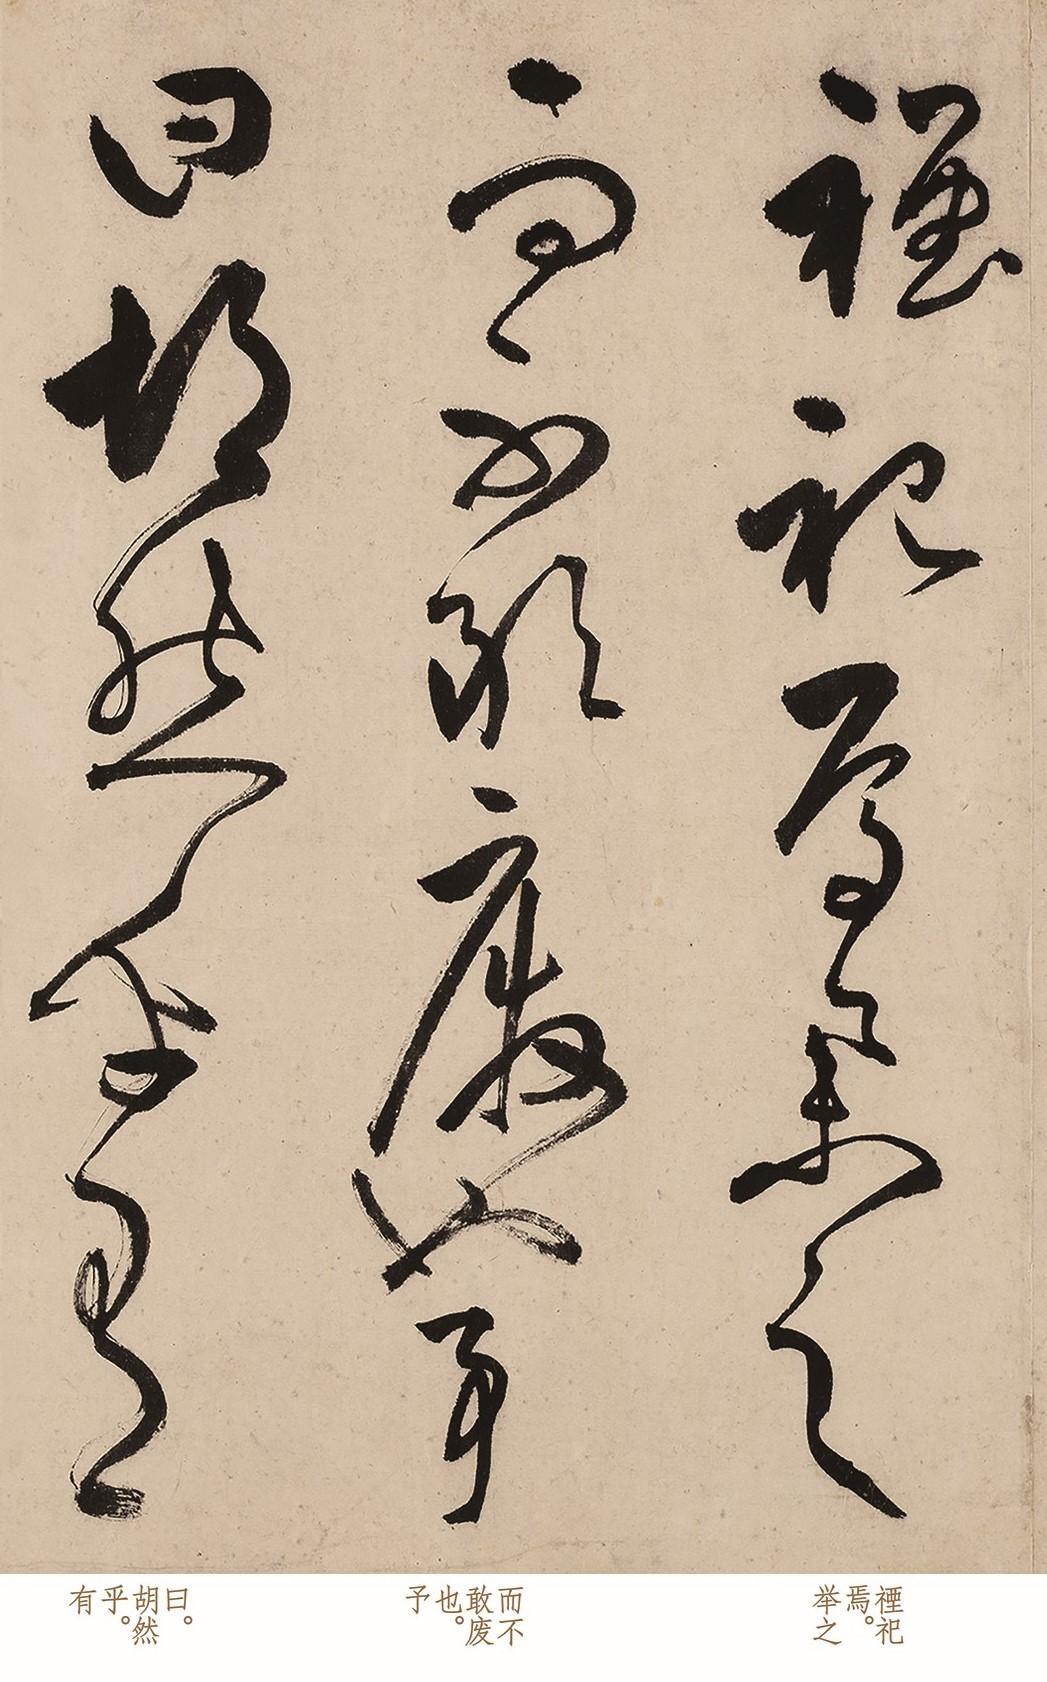 禋祀焉舉之
而不敢廢也予
曰胡然乎有
禋祀
焉。
举之
而不
敢废
也。
予
曰。
胡然
乎。
有